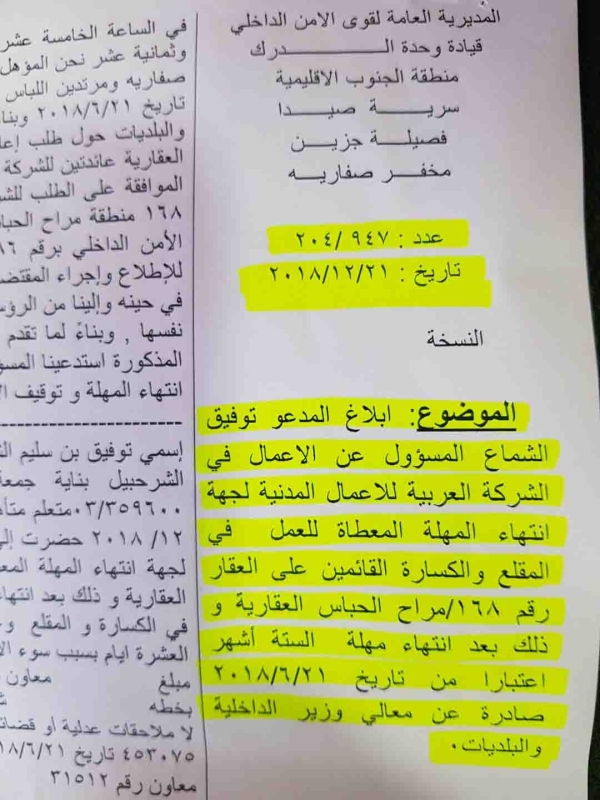 المديرية العامة لقوى الامن الداخلي
قيادة وحدة الـــــــــدرك
منطقة الجنوب الاقليمية
سريـــــة صيـــــدا
فصيلـــة جزيـــن
مخفـر صفاريـــه
عدد : ٩٤٧ /٢٠٤
تاريخ : ٢٠١٨/١٢/٢١
النسخة
الموضوع: ابلاغ المدعو توفيق
الشماع المسؤول عن الاعمال في
الشركة العربية للاعمال المدنية لجهة
انتهاء المهلة المعطاة للعمل في
المقلع والكسارة القائمين على العقار
رقم ١٦٨/مراح الحباس العقارية و
ذلك بعد انتهاء مهلة الستة أشهر
اعتبارا من تاريخ ٢٠١٨/٦/٢١
صادرة عن معالي وزير الداخلية
والبلديات.
في الساعة الخامسة عشر
وثمانية عشر نحن المؤهل
صفاريه ومرتدين اللباس
تاريخ ٢٠١٨/٦/٢١ وبنا
والبلديات حول طلب إعا
العقارية عائدتين للشركة
الموافقة على الطلب للشر
١٦٨ منطقة مراح الحبا
الأمن الداخلي برقم ٨٦
للإطلاع وإجراء المقتض
في حينه وإلينا من الرؤس
نفسها , وبناءً لما تقدم
المذكورة استدعينا المسؤ
انتهاء المهلة و توقيف ا
إسمي توفيق بن سليم الش
الشرحبيل بناية جمعة
٠٣/٣٥٩٦٠٠متعلم متأ
١٢/ ٢٠١٨ حضرت إلى
لجهة انتهاء المهلة المع
العقارية و ذلك بعد انتها
في الكسارة و المقلع و
العشرة ايام بسبب سوء الأ
مبلغ معاون
بخطه
لا ملاحقات عدلية أو قضائ
٤٥٣٠٧٥ تاريخ ٢١/٦/١٨
معاون رقم ٣١٥١٢